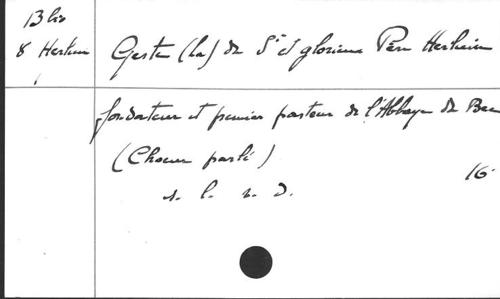 B bis
8 Herluin
Geste (La) du St et glorieux Père Herluin
fondateur et premier pasteur de l'Abbaye du Bec
(Choeur parlé)
16°
s. l. n. d.